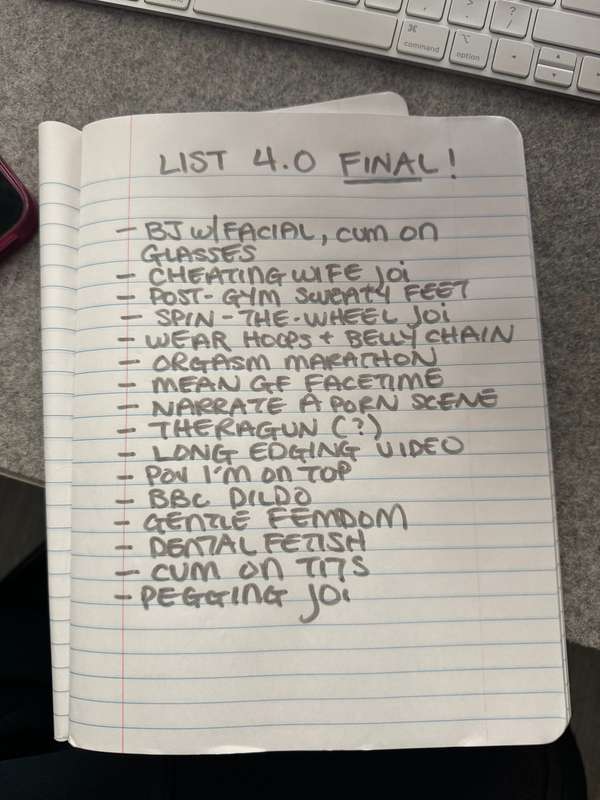 LIST 4.0 FINAL!
- BJ w/FACIAL, CUM ON
GLASSES
- CHEATING WIFE JOI
- POST-GYM SWEATY FEET
- SPIN-THE-WHEEL JOI
- WEAR HOOPS + BELLY CHAIN
- ORGASM MARATHON
- MEAN GF FACETIME
- NARRATE A PORN SCENE
- THERAGUN (?)
- LONG EDGING VIDEO
- POV I'M ON TOP
- BBC DILDO
- GENTLE FEMDOM
- DENTAL FETISH
- CUM ON TITS
- PEGGING JOI
command
option
?
/
>
.
⌘
⌥